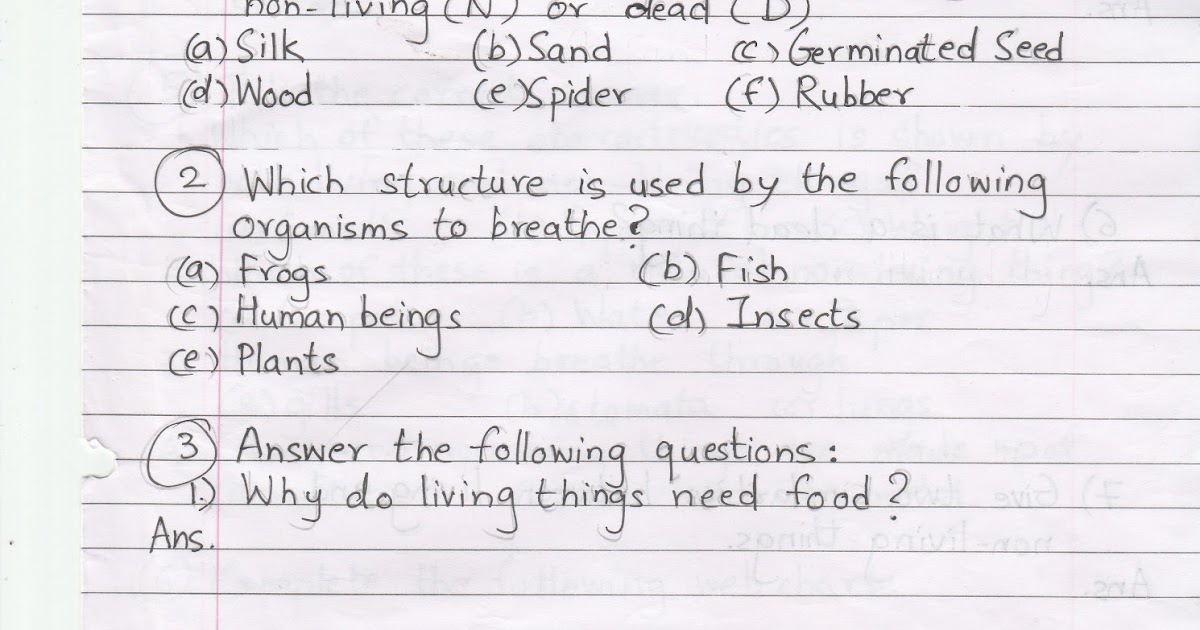 non-living (N) or dead (D)
(a) Silk (b) Sand (c) Germinated Seed
(d) Wood (e) Spider (f) Rubber
2 Which structure is used by the following
organisms to breathe?
(a) Frogs (b) Fish
(c) Human beings (d) Insects
(e) Plants
3 Answer the following questions:
1.) Why do living things need food?
Ans.